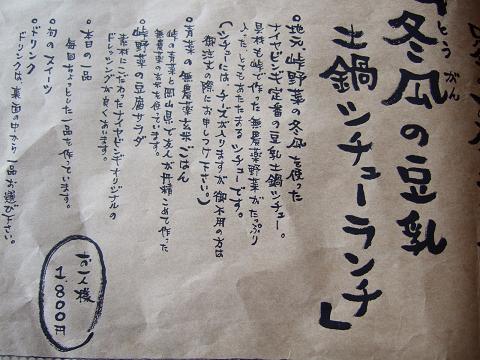 冬瓜の豆乳
とうがん
土鍋シチューランチ」
・地元 峠野菜の冬瓜を使った
ナイヤビンギ定番の豆乳土鍋シチュー。
具材も峠で作った無農薬野菜がたっぷり
入った、とてもあたたまるシチューです。
(シチューにはチーズが入りますが御不用の方は
御注文の際にお申しつけ下さい。)
無農薬玄米ごはん
峠の
と岡山県で友人が丹精こめて作った
無農薬の玄米を使ています。
・峠野菜の豆腐サラダ
素材にこだわったナイヤビンギオリジナルの
ドレッシングが良くあいます。
・本日の一品
毎回ちょっとした一品を作っています。
・旬のスイーツ
・ドリンク
ドリンクは、裏面の中から一品お選び下さい。
お一人様
1.800円